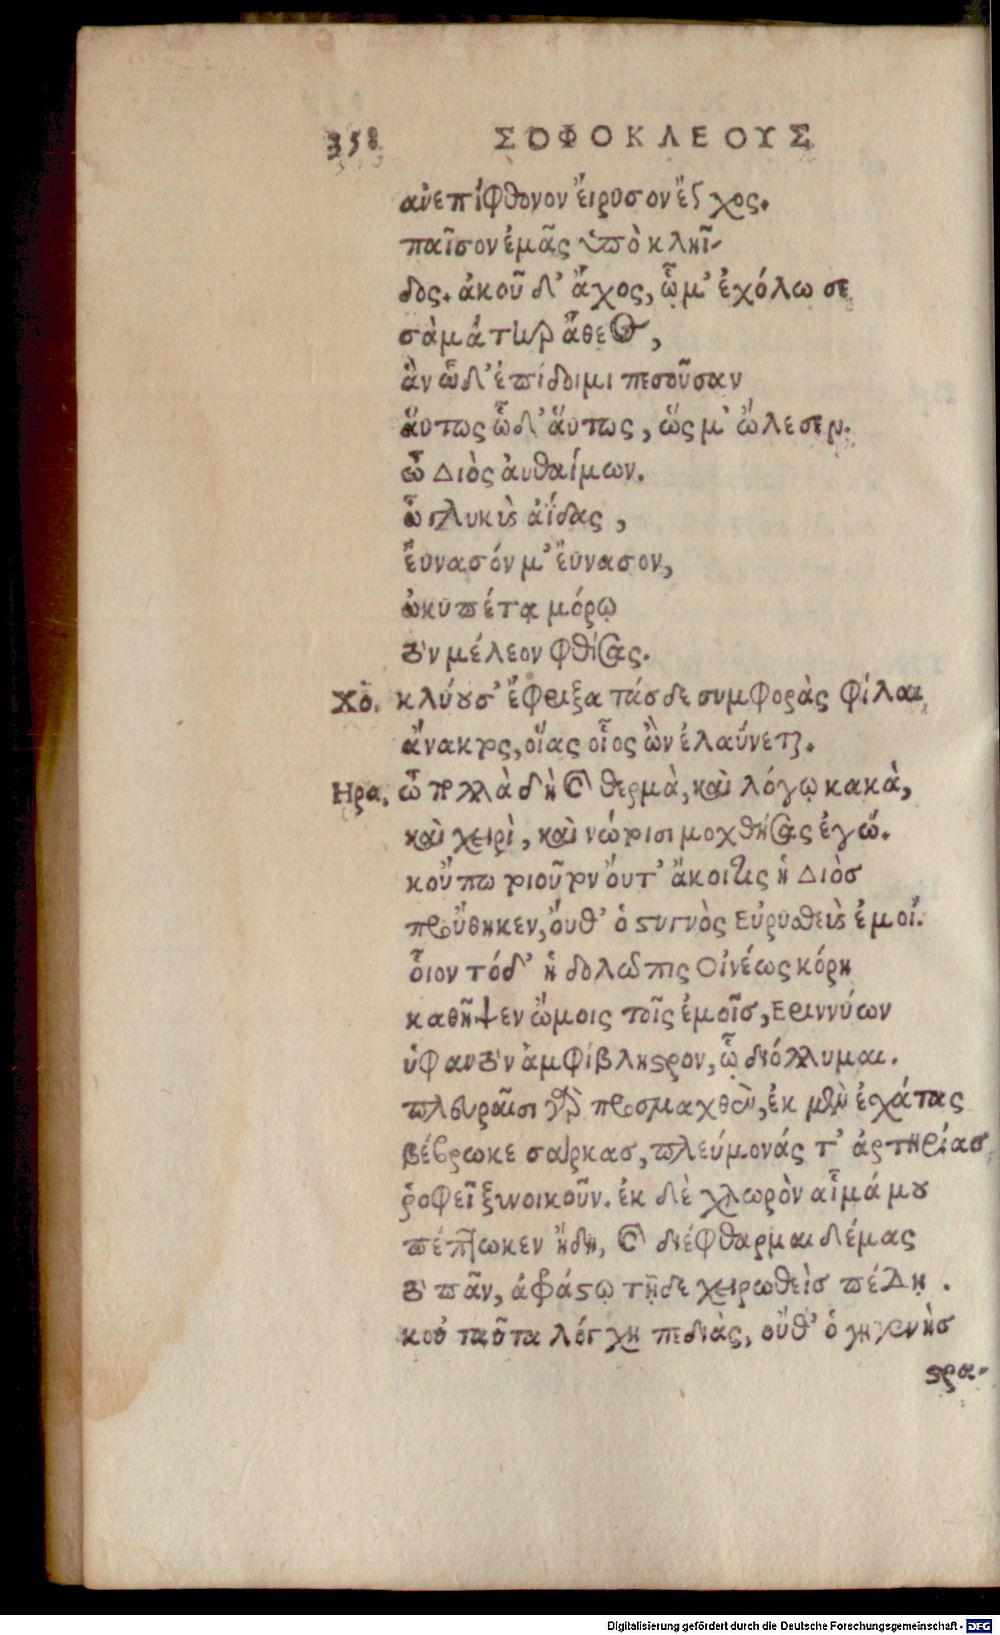 358 ΣΟΦΟΚΛΕΟΥΣ
ἀνεπίφθονον εἴρυσον ἔγχος.
παῖσον ἐμᾶς ὑπὸ κληῖ-
δος. ἀκοῦ δ' ἄχος, ᾧ μ' ἐχόλωσε
σὰ μάτηρ ἄθεος,
ἃν ὧδ' ἐπίδοιμι πεσοῦσαν
ἅυτως ὧδ' ἅυτως, ὥς μ' ὤλεσεν.
ὦ Διὸς ἀυθαίμων.
ὦ γλυκὺς ἀΐδας,
ἔυνασόν μ' ἔυνασον,
ὠκυπέτᾳ μόρῳ
τὸν μέλεον φθίσας.
Χό. κλύουσ' ἔφριξα τάσδε συμφορὰς φίλαι,
ἄνακτος, οἵας οἷος ὢν ἐλαύνεται.
Ηρα. ὦ πολλὰ δὴ καὶ θερμὰ, καὶ λόγῳ κακὰ,
καὶ χειρὶ, καὶ νώτοισι μοχθήσας ἐγώ.
κοὔπω τοιοῦτον ὄυτ' ἄκοιτις ἡ Διὸσ
προὔθηκεν, ὄυθ' ὁ στυγνὸς Εὐρυσθεὺς ἐμοί.
ὅιον τόδ' ἡ δολῶπις Οἰνέως κόρη
καθῆψεν ὤμοις τοῖς ἐμοῖσ, Εριννύων
ὑφαντὸν ἀμφίβληστρον, ᾧ διόλλυμαι.
πλευραῖσι γὰρ προσμαχθὲν, ἐκ μὲν ἐσχάτας
βέβρωκε σάρκασ, πλεύμονάς τ' ἀρτηρίασ
ῥοφεῖ ξυνοικοῦν. ἐκ δὲ χλωρὸν αἷμά μου
πέπτωκεν ἤδη, καὶ διέφθαρμαι δέμας
τὸ πᾶν, ἀφράστῳ τῇδε χειρωθεὶσ πέδῃ.
κοὐ ταῦτα λόγχη πεδιὰς, οὔθ' ὁ γηγενὴσ
στρα-
Digitalisierung gefördert durch die Deutsche Forschungsgemeinschaft - DFG